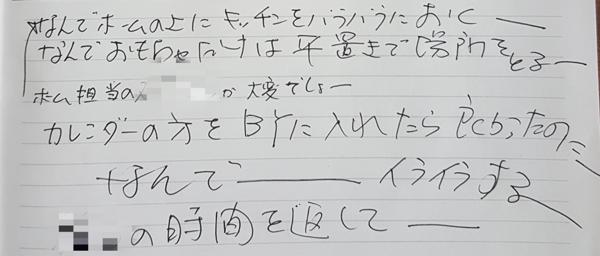 なんでホームの上にキッチンをバラバラにおく――
なんでおもちゃだけは平置きで場所をとる―
ホーム担当の が大変でしょー
カレンダーの方を に入れたらよかったのに
なんで―― イライラする
の時間を返して――